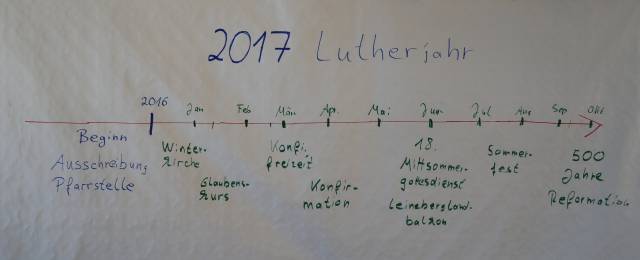 2017 Lutherjahr
2016 Jan Feb März Apr. Mai Jun Jul Aug Sep Okt
Beginn
Ausschreibung
Pfarrstelle
Winter-
kirche
Glaubens-
kurs
Konfi.
freizeit
Konfir-
mation
18.
Mittsommer-
gottesdienst
Leinebergland-
balkon
Sommer-
fest
500
Jahre
Reformation